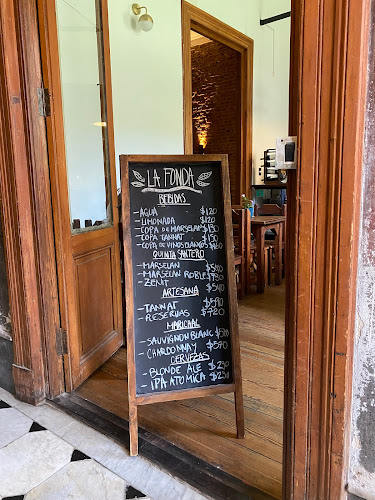 LA FONDA
BEBIDAS
- AGUA $120
- LIMONADA $120
- COPA DE MARSELAN $130
- COPA TANNAT $150
- COPA DE VINOS BLANCOS
QUINTA SANTERO
- MARSELAN
- MARSELAN ROBLE
- ZENIT
ARTESANA
- TANNAT
- RESERVAS $720
MARICHAL
- SAUVIGNON BLANC
- CHARDONNAY $590
CERVEZAS
- BLONDE ALE
- IPA ATOMICA